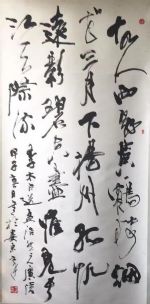 故人西辭黃鶴樓烟
花三月下揚州孤帆
遠影碧空盡惟見長
江天際流
李太白送孟浩然之廣陵
甲子夏日